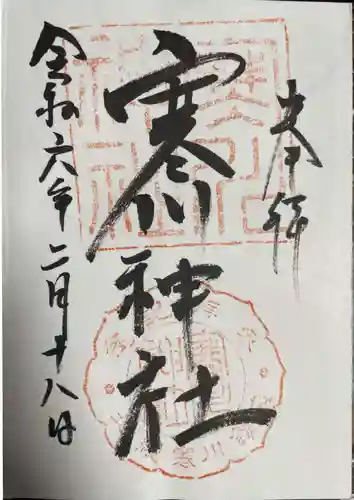 奉拝
寒川神社
令和六年二月十八日